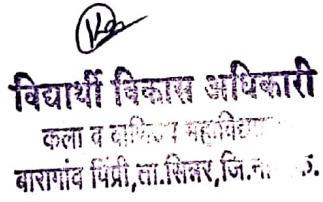 विद्यार्थी विकास अधिकारी
कला व वाणिज्य महाविद्या
बारागांव पिंप्री,ता.सिन्नर,जि.ना क.